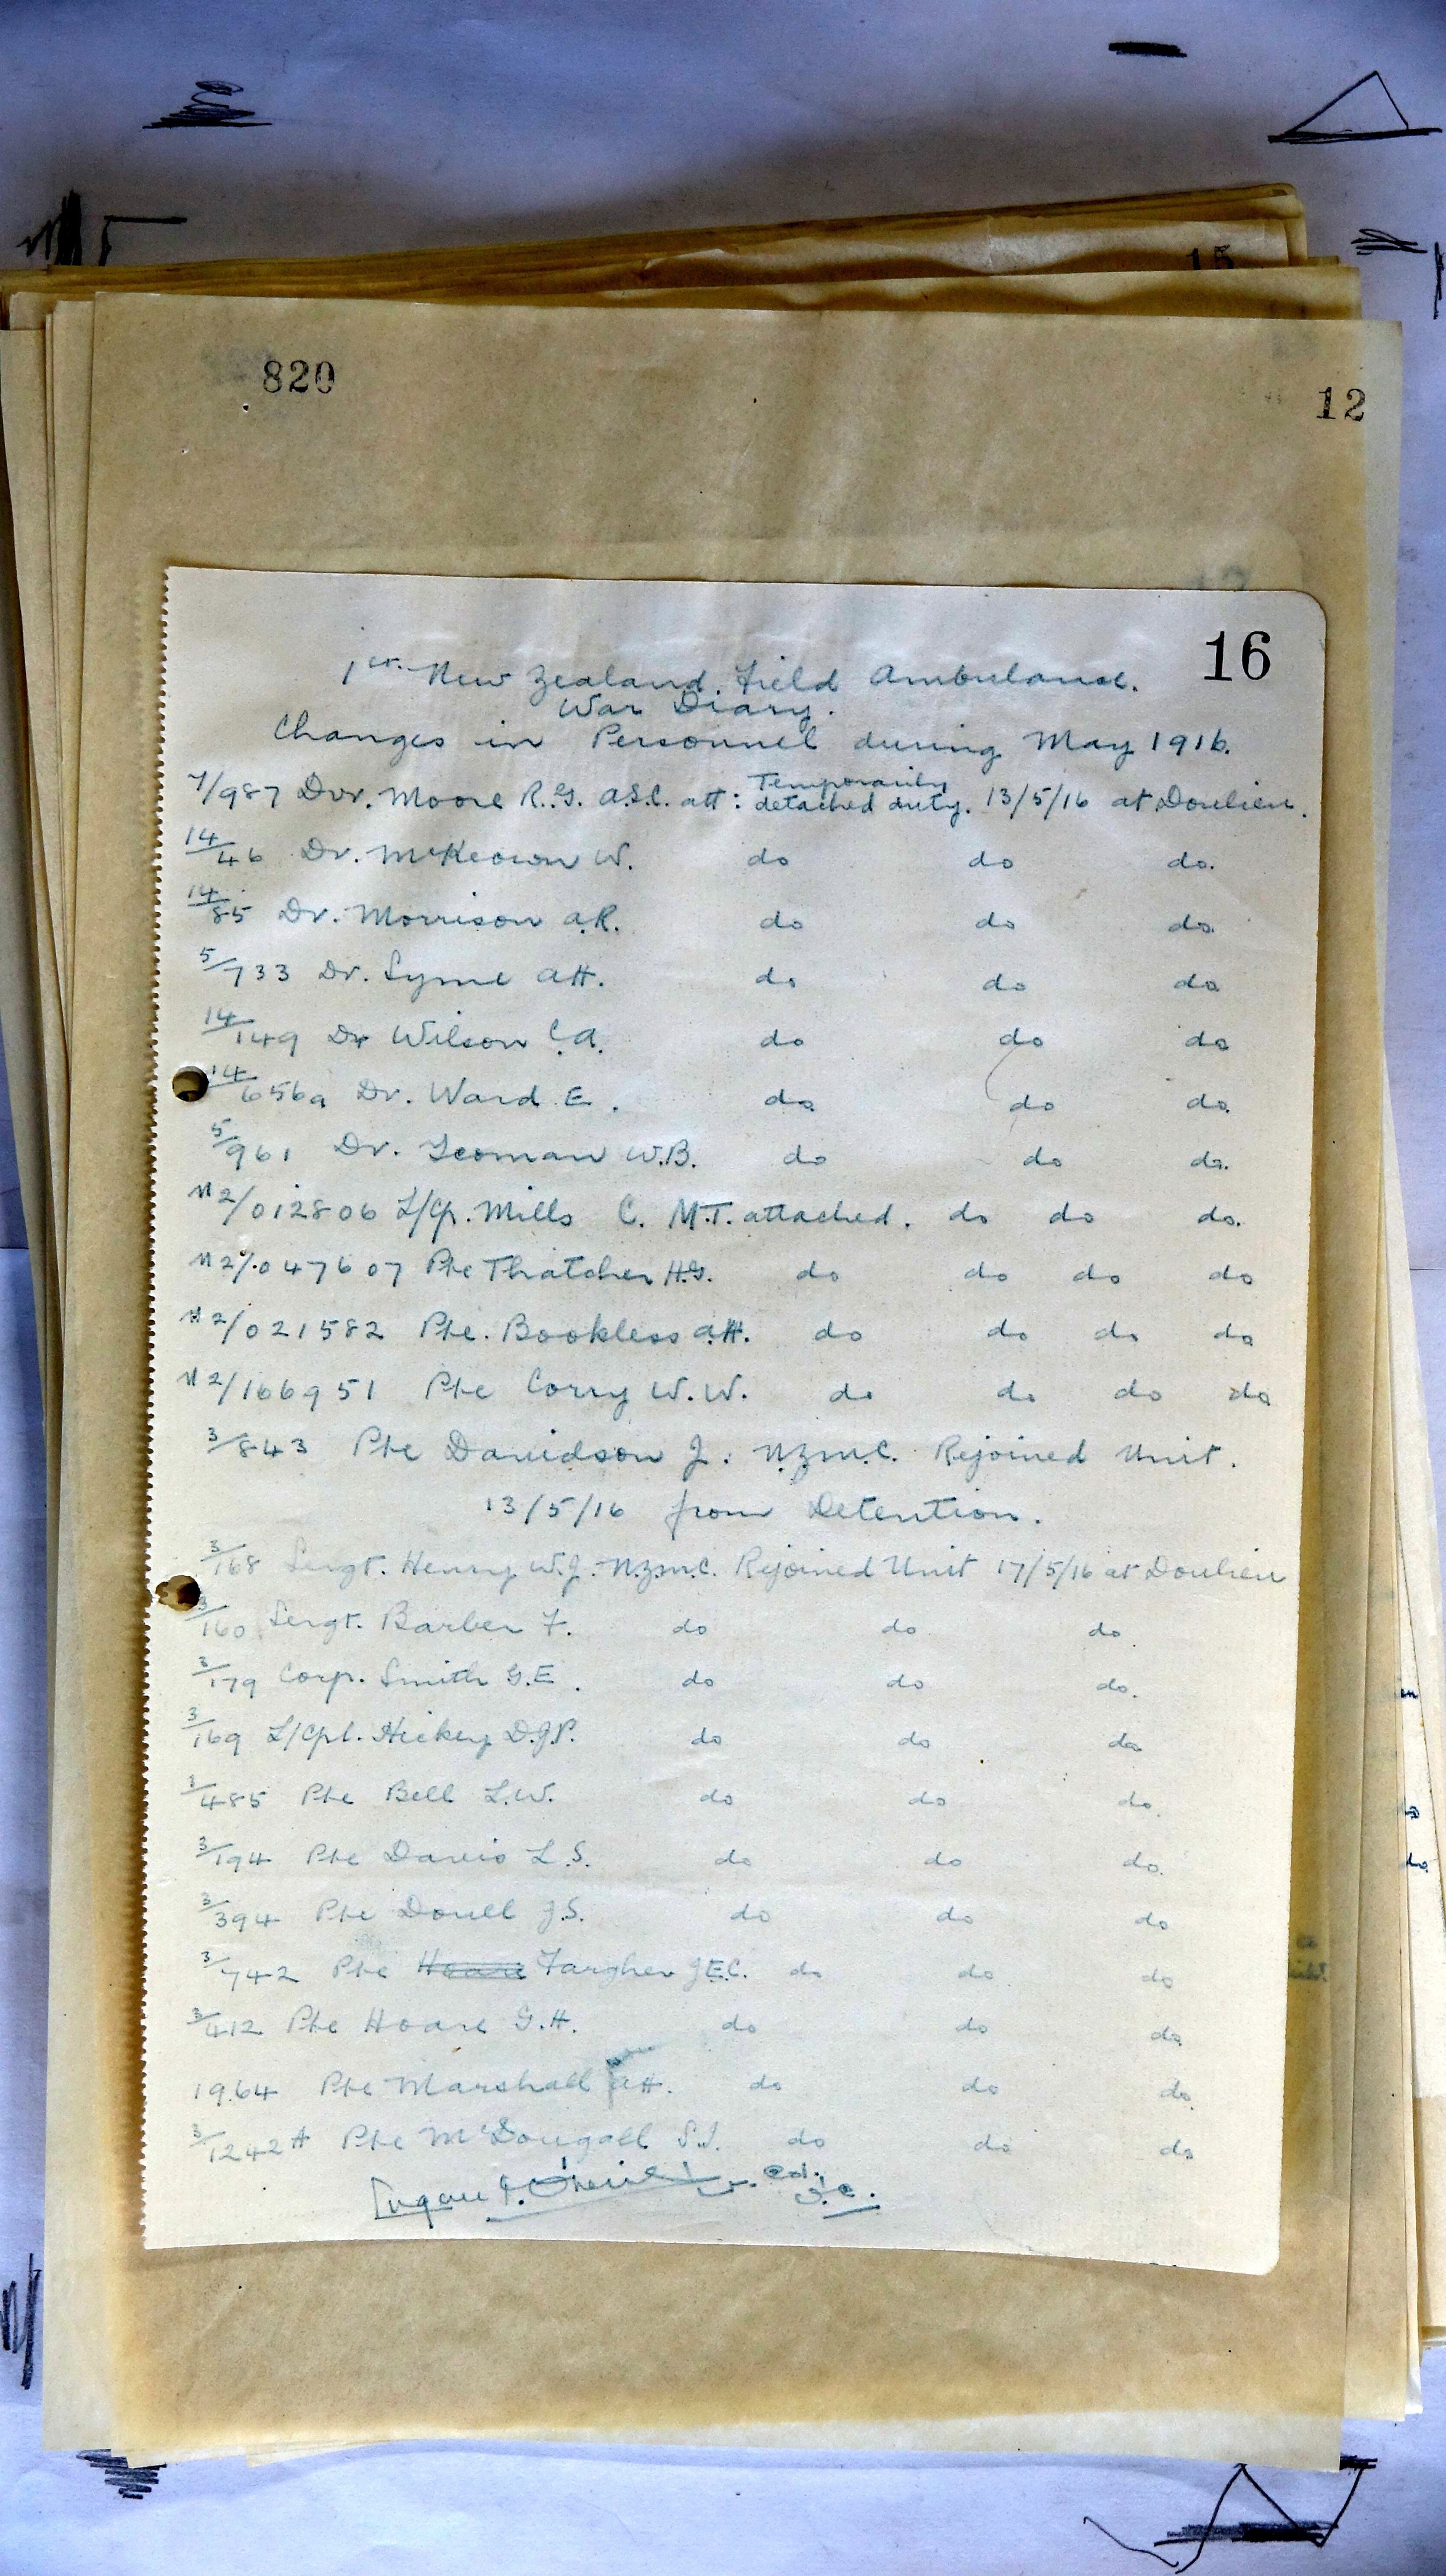 15
820
12
16
1st. New Zealand. Field Ambulance.
War Diary.
Changes in Personnel during May 1916.
7/987 Dvr. Moore R.G. A.S.C. att: Temporarily detached duty. 13/5/16 at Doulieu.
14/46 Dr. McKeown W. do do do.
14/85 Dr. Morrison A.R. do do do.
5/733 Dr. Lyme A.H. do do do
14/149 Dr Wilson C.A. do do do
14/656a Dr. Ward E. do do do.
5/961 Dr. Yeoman W.B. do do do.
M2/012806 L/Cp. Mills C. M.T. attached. do do do.
M2/.047607 Pte Thatcher H.G. do do do do
M2/021582 Pte. Bookless A.H. do do do do
M2/166951 Pte Corry W.W. do do do do
3/843 Pte Davidson J. N.Z.M.C. Rejoined Unit.
13/5/16 from Detention.
3/168 Sergt. Henry W.J. N.Z.M.C. Rejoined Unit 17/5/16 at Doulieu
3/160 Sergt. Barber F. do do do
3/179 Corp. Smith G.E. do do do.
3/169 L/Cpl. Hickey D.J.P. do do do
3/485 Pte Bell L.W. do do do.
3/194 Pte Davis L.S. do do do.
3/394 Pte Doull J.S. do do do
3/742 Pte Hoare Fargher J.E.C. do do do
3/412 Pte Hoare G.H. do do do
1964 Pte Marshall A.H. do do do
3/1242A Pte McDougall S.J. do do do
Col.